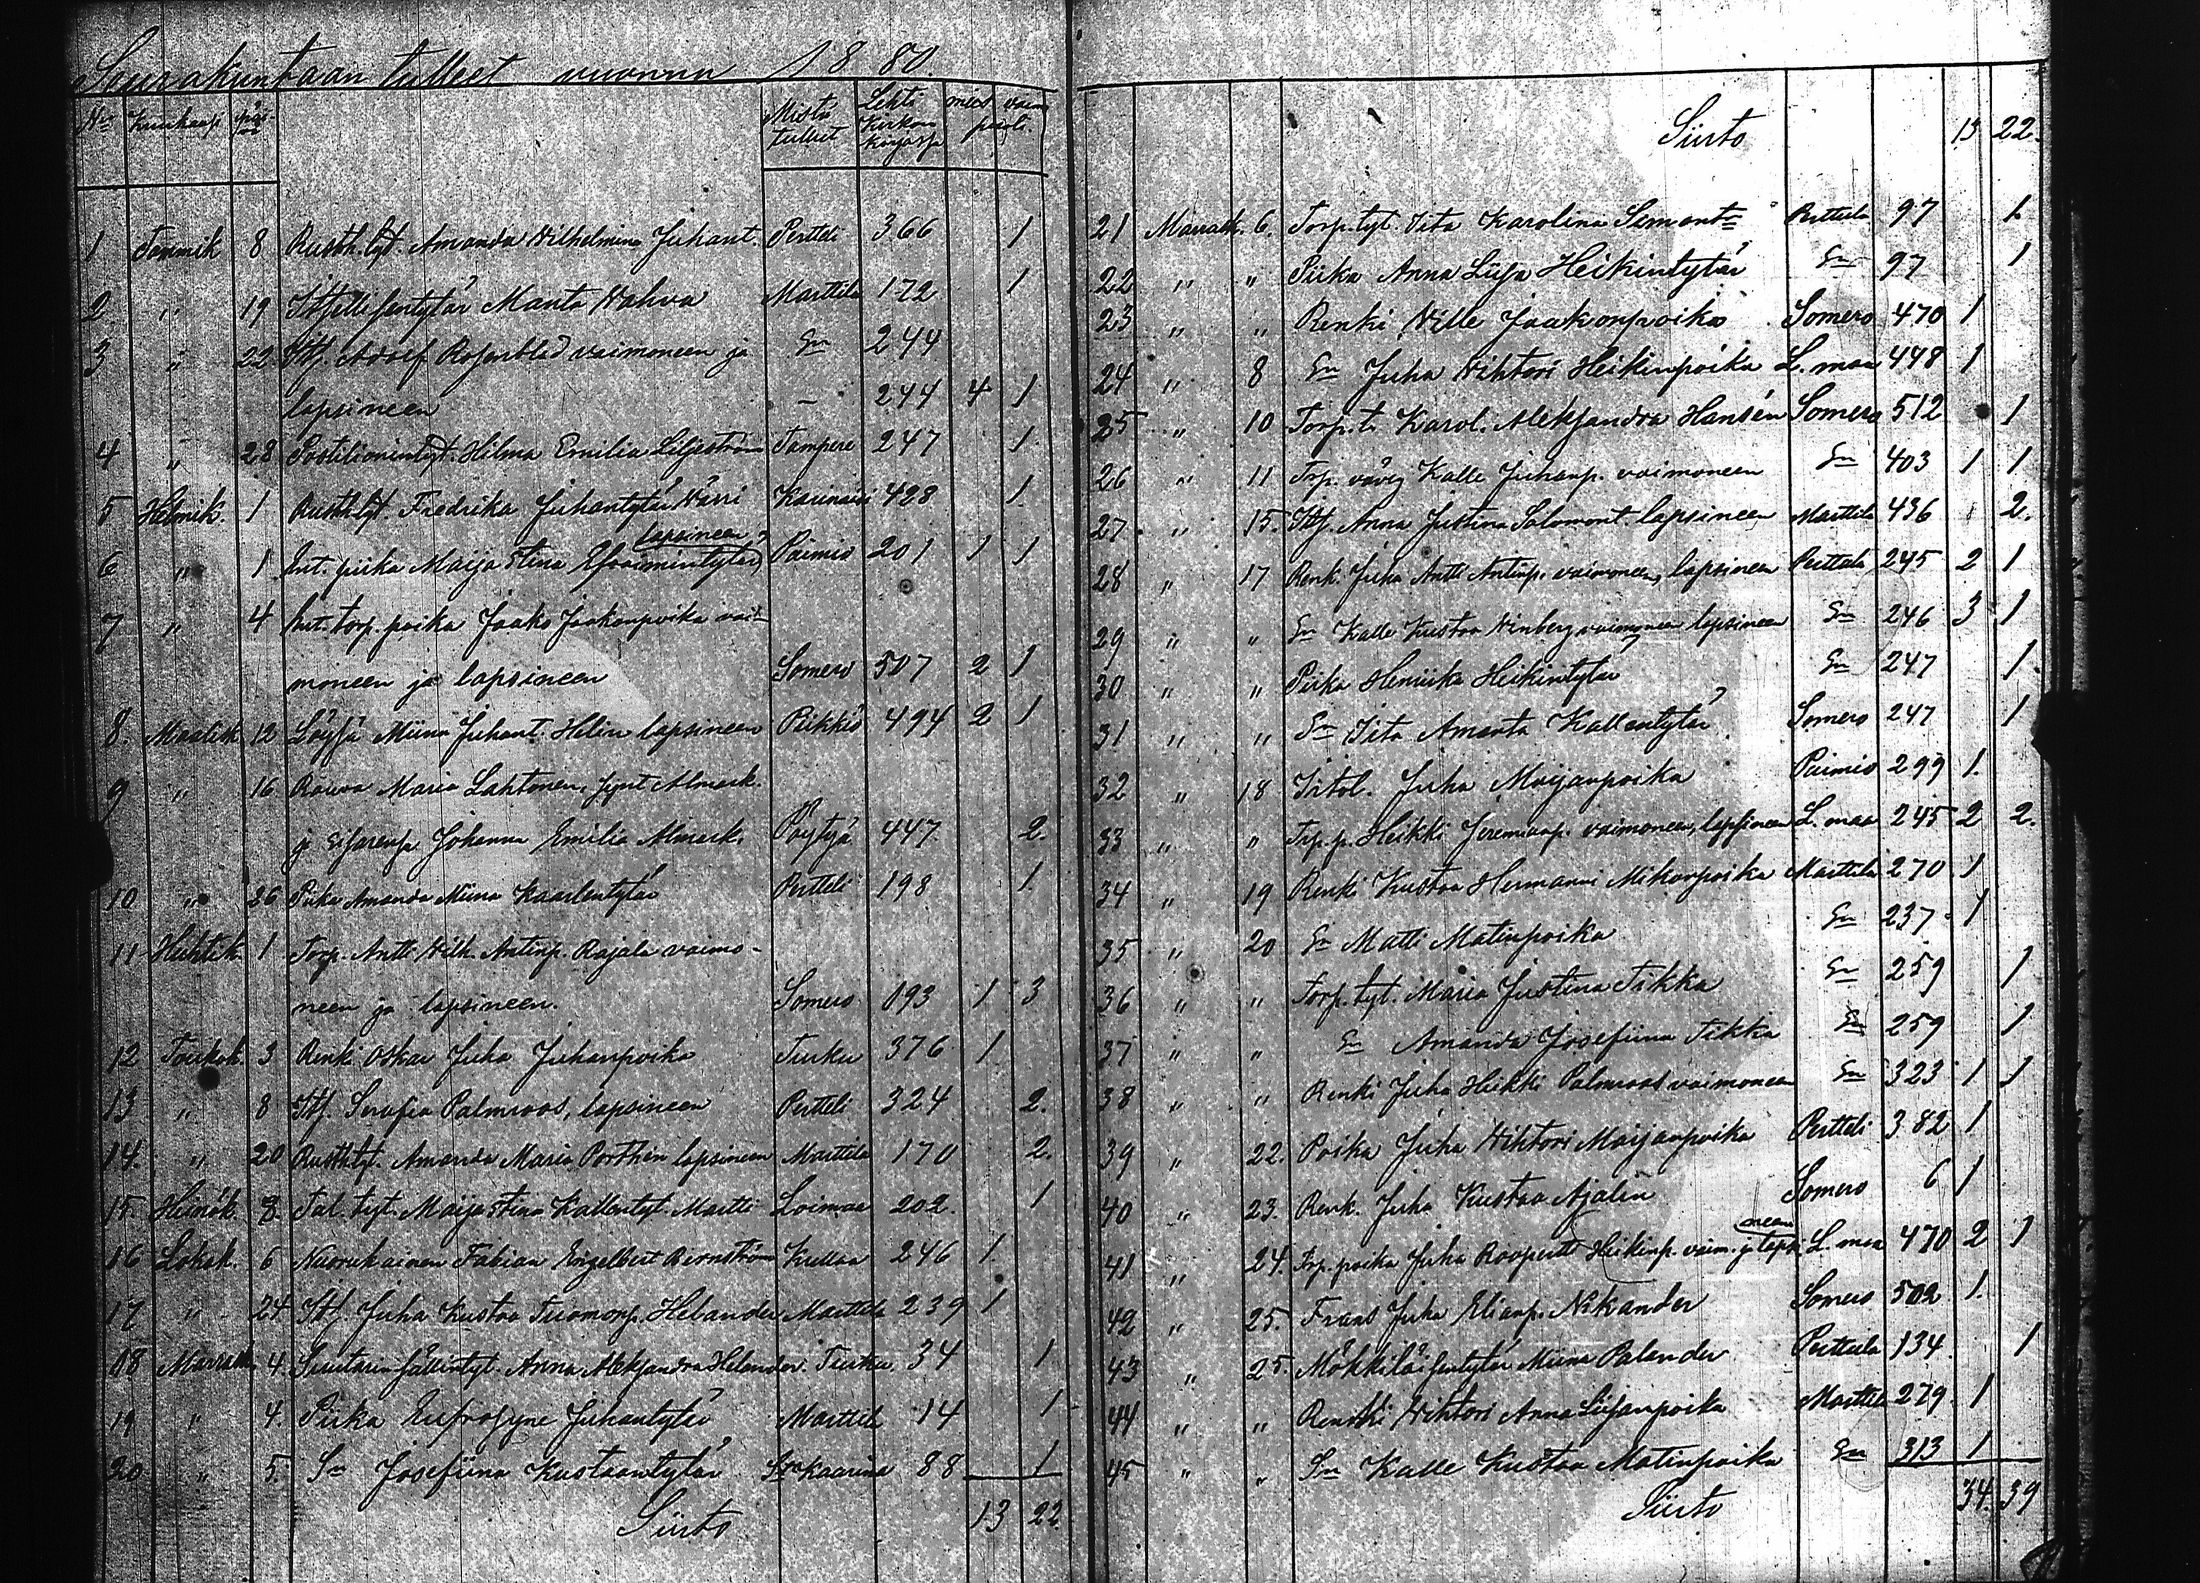 Seurakuntaan tulleet vuonna 1880.
No Kuukausi Mistä tulleet Lehti Kirkon kirjassa mies vaim puoli.
1 Tammik 8 Rusth. tyt. Amanda Wilhelmina Juhant. Pertteli 366 1
2. " 19 Itsellisentytär Manta Wahva Marttila 172 1
3 " 22 Its. Adolf Rosenblad vaimoneen ja Sn 244
lapsineen – 244 4 1
4 " 28 Postilionintyt. Hilma Emilia Liljeström Tampere 247 1
5 Helmik. 1 Rusth. tyt. Fredrika Juhantytär Karinainen 428 1
6 " 1 Ent. piika Maija Stina Efraimintytär lapsineen Paimio 201 1 1
7 " 4 Ent. torp. poika Jaako Jaakonpoika vai-
moneen ja lapsineen Somero 507 2 1
8. Maalisk. 12 Miina Juhant. Helin lapsineen Piikkiö 494 2 1
9 " 16 Rouva Maria Lahtonen, synt Almark.
ja Johanna Emilia Almark. Pöytyä 447 2.
10 " 26 Piika Amanda Miina Kaarlentytär Pertteli 198 1
11 Huhtik. 1 Torp. Antti Wilh. Antinp. Rajala vaimo-
neen ja lapsineen. Somero 193 1 3
12 Toukok. 3 Renki Oskar Juha Juhanpoika Turku 376 1
13 " 8 Its. Serafia Palmroos, lapsineen Pertteli 324 2.
14. " 20 Rusth. tyt. Amanda Maria Porthén lapsineen Marttila 170 2.
15. Heinäk. 8. Tal. tyt. Maija Stina Kallentyt. Martti Loimaa 202. 1
16 Lokak. 6 Nuorukainen Fabian Engelbert Bernström Kullaa 246 1.
17 " 24 Its. Juha Kustaa Tuomonp. Helander Marttila 239 1
18 Marrask. 4. Anna Aleksandra Helander. Turku. 34 1
19 " 4. Piika Eufrosyne Juhantytär Marttila 14 1
20 " 5. Sn Josefiina Kustaantytär St Kaarina 88 1
Siirto 13 22.
Siirto 13 22.
21 Marrask. 6. Torp. tyt. Iita Karolina Simont= Perttula 97 1.
22 " " Piika Anna Liisa Heikintytär Sn 97 1
23 " " Renki Wille Jaakonpoika Somero 470 1
24 " 8 Sn Juha Wihtori Heikinpoika L. maa 448 1
25 " 10 Torp. t. Karol. Aleksandra Hansén Somero 512 1
26 " 11 Trp. vävy Kalle Juhanp. vaimoneen Sn 403 1 1
27 " 15. Its. Anna Justina Salomont. lapsineen Marttila 436 2.
28 " 17 Renk. Juha Antti Antinp. vaimoneen, lapsineen Perttula 245 2 1
29 " " Sn Kalle Kustaa Winberg vaimoneen lapsineen Sn 246 3 1
30 " " Piika Henriika Heikintytär Sn 247 1.
31 " " Sn Iita Amanta Kallentytär Somero 247 1
32 " 18 Itsel. Juha Maijanpoika Paimio 299 1.
33 " " Trp. p. Heikki Jeremianp. vaimoneen, lapsineen L. maa 245 2 2.
34 " 19 Renki Kustaa Hermanni Mikonpoika Marttila 270 1
35 " 20 Sn Matti Matinpoika Sn 237 1
36 " " Torp. tyt. Maria Justina Tikka Sn 259 1
37 " " Sn Amanda Josefiina Tikka Sn 259 1
38 " " Renki Juha Heikki Palmroos vaimoneen Sn 323 1 1
39 " 22. Poika Juha Wihtori Maijanpoika Pertteli 382 1
40 " 23. Renk. Juha Kustaa Ajalin Somero 6 1
41 " 24. Trp. poika Juha Roopertti Heikinp. vaim. ja lapsineen L. maa 470 2 1
42 " 25. Frans Juha Elianp. Nikander Somero 502 1.
43 " 25. Mökkiläisentytär Miina Palander Perttula 134 1
44 " " Renki Wihtori Anna Liisanpoika Marttila 279 1
45 " " Sn Kalle Kustaa Matinpoika Sn 313 1
Siirto 34. 39